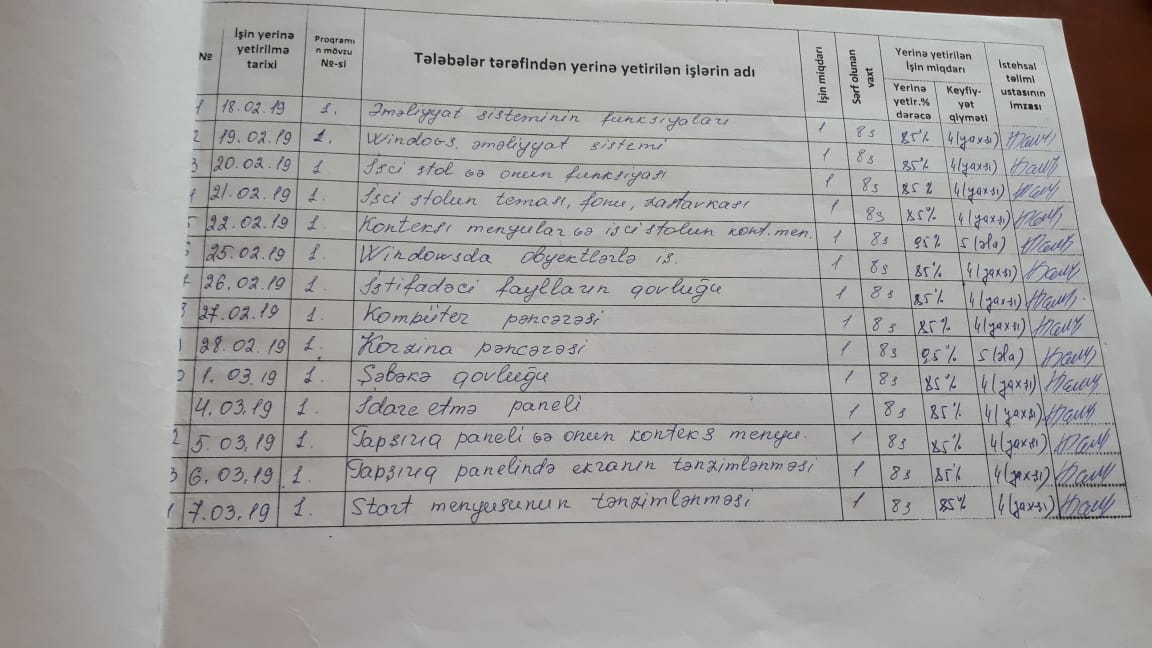 № İşin yerinə yetirilmə tarixi Proqramın mövzu №-si Tələbələr tərəfindən yerinə yetirilən işlərin adı İşin miqdarı Sərf olunan vaxt Yerinə yetirilən İşin miqdarı İstehsalat təlimi ustasının imzası
Yerinə yetir.% dərəcə Keyfiyyət qiyməti
1 18.02.19 1. Əməliyyat sisteminin funksiyaları 1 8s 85% 4(yaxşı)
2 19.02.19 1. Windows. əməliyyat sistemi 1 8s 85% 4(yaxşı)
3 20.02.19 1 İşci stol və onun funksiyası 1 8s 85% 4(yaxşı)
4 21.02.19 1. İşci stolun teması, fonu, zastavkası 1 8s 85% 4(yaxşı)
5 22.02.19 1. Konteksı menyular və işci stolun kont.men. 1 8s 95% 5(əla)
6 25.02.19 1. Windowsda obyektlərlə iş. 1 8s 85% 4(yaxşı)
7 26.02.19 1. İstifadəci faylların qovluğu 1 8s 85% 4(yaxşı)
8 27.02.19 1. Kompüter pəncərəsi 1 8s 85% 4(yaxşı)
28.02.19 1. Korzina pəncərəsi 1 8s 95% 5(əla)
0 1.03.19 1. Şəbəkə qovluğu 1 8s 85% 4(yaxşı)
4.03.19 1. İdare etmə paneli 1 8s 85% 4(yaxşı)
2 5.03.19 1. Tapşırıq paneli və onun konteks menyu. 1 8s 85% 4(yaxşı)
3 6.03.19 1. Tapşırıq panelində ekranın tənzimlənməsi 1 8s 85% 4(yaxşı)
7.03.19 1. Start menyusunun tənzimlənməsi 1 8s 85% 4(yaxşı)